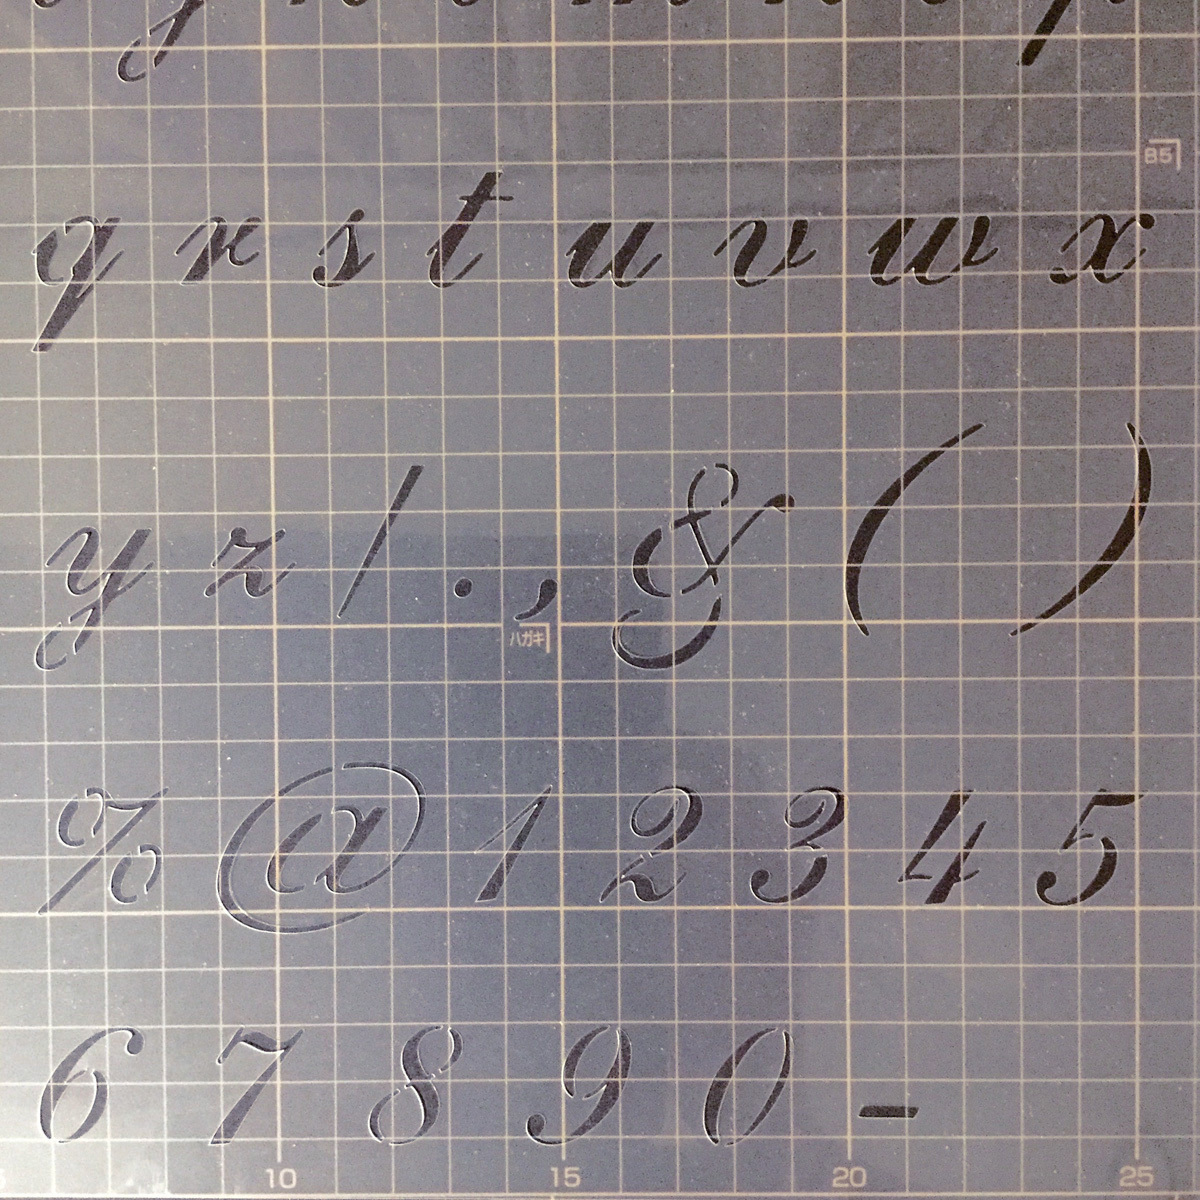 B5
q r s t u v w x
y z / . , & ( )
ハガキ
% @ 1 2 3 4 5
6 7 8 9 0 -
10 15 20 25